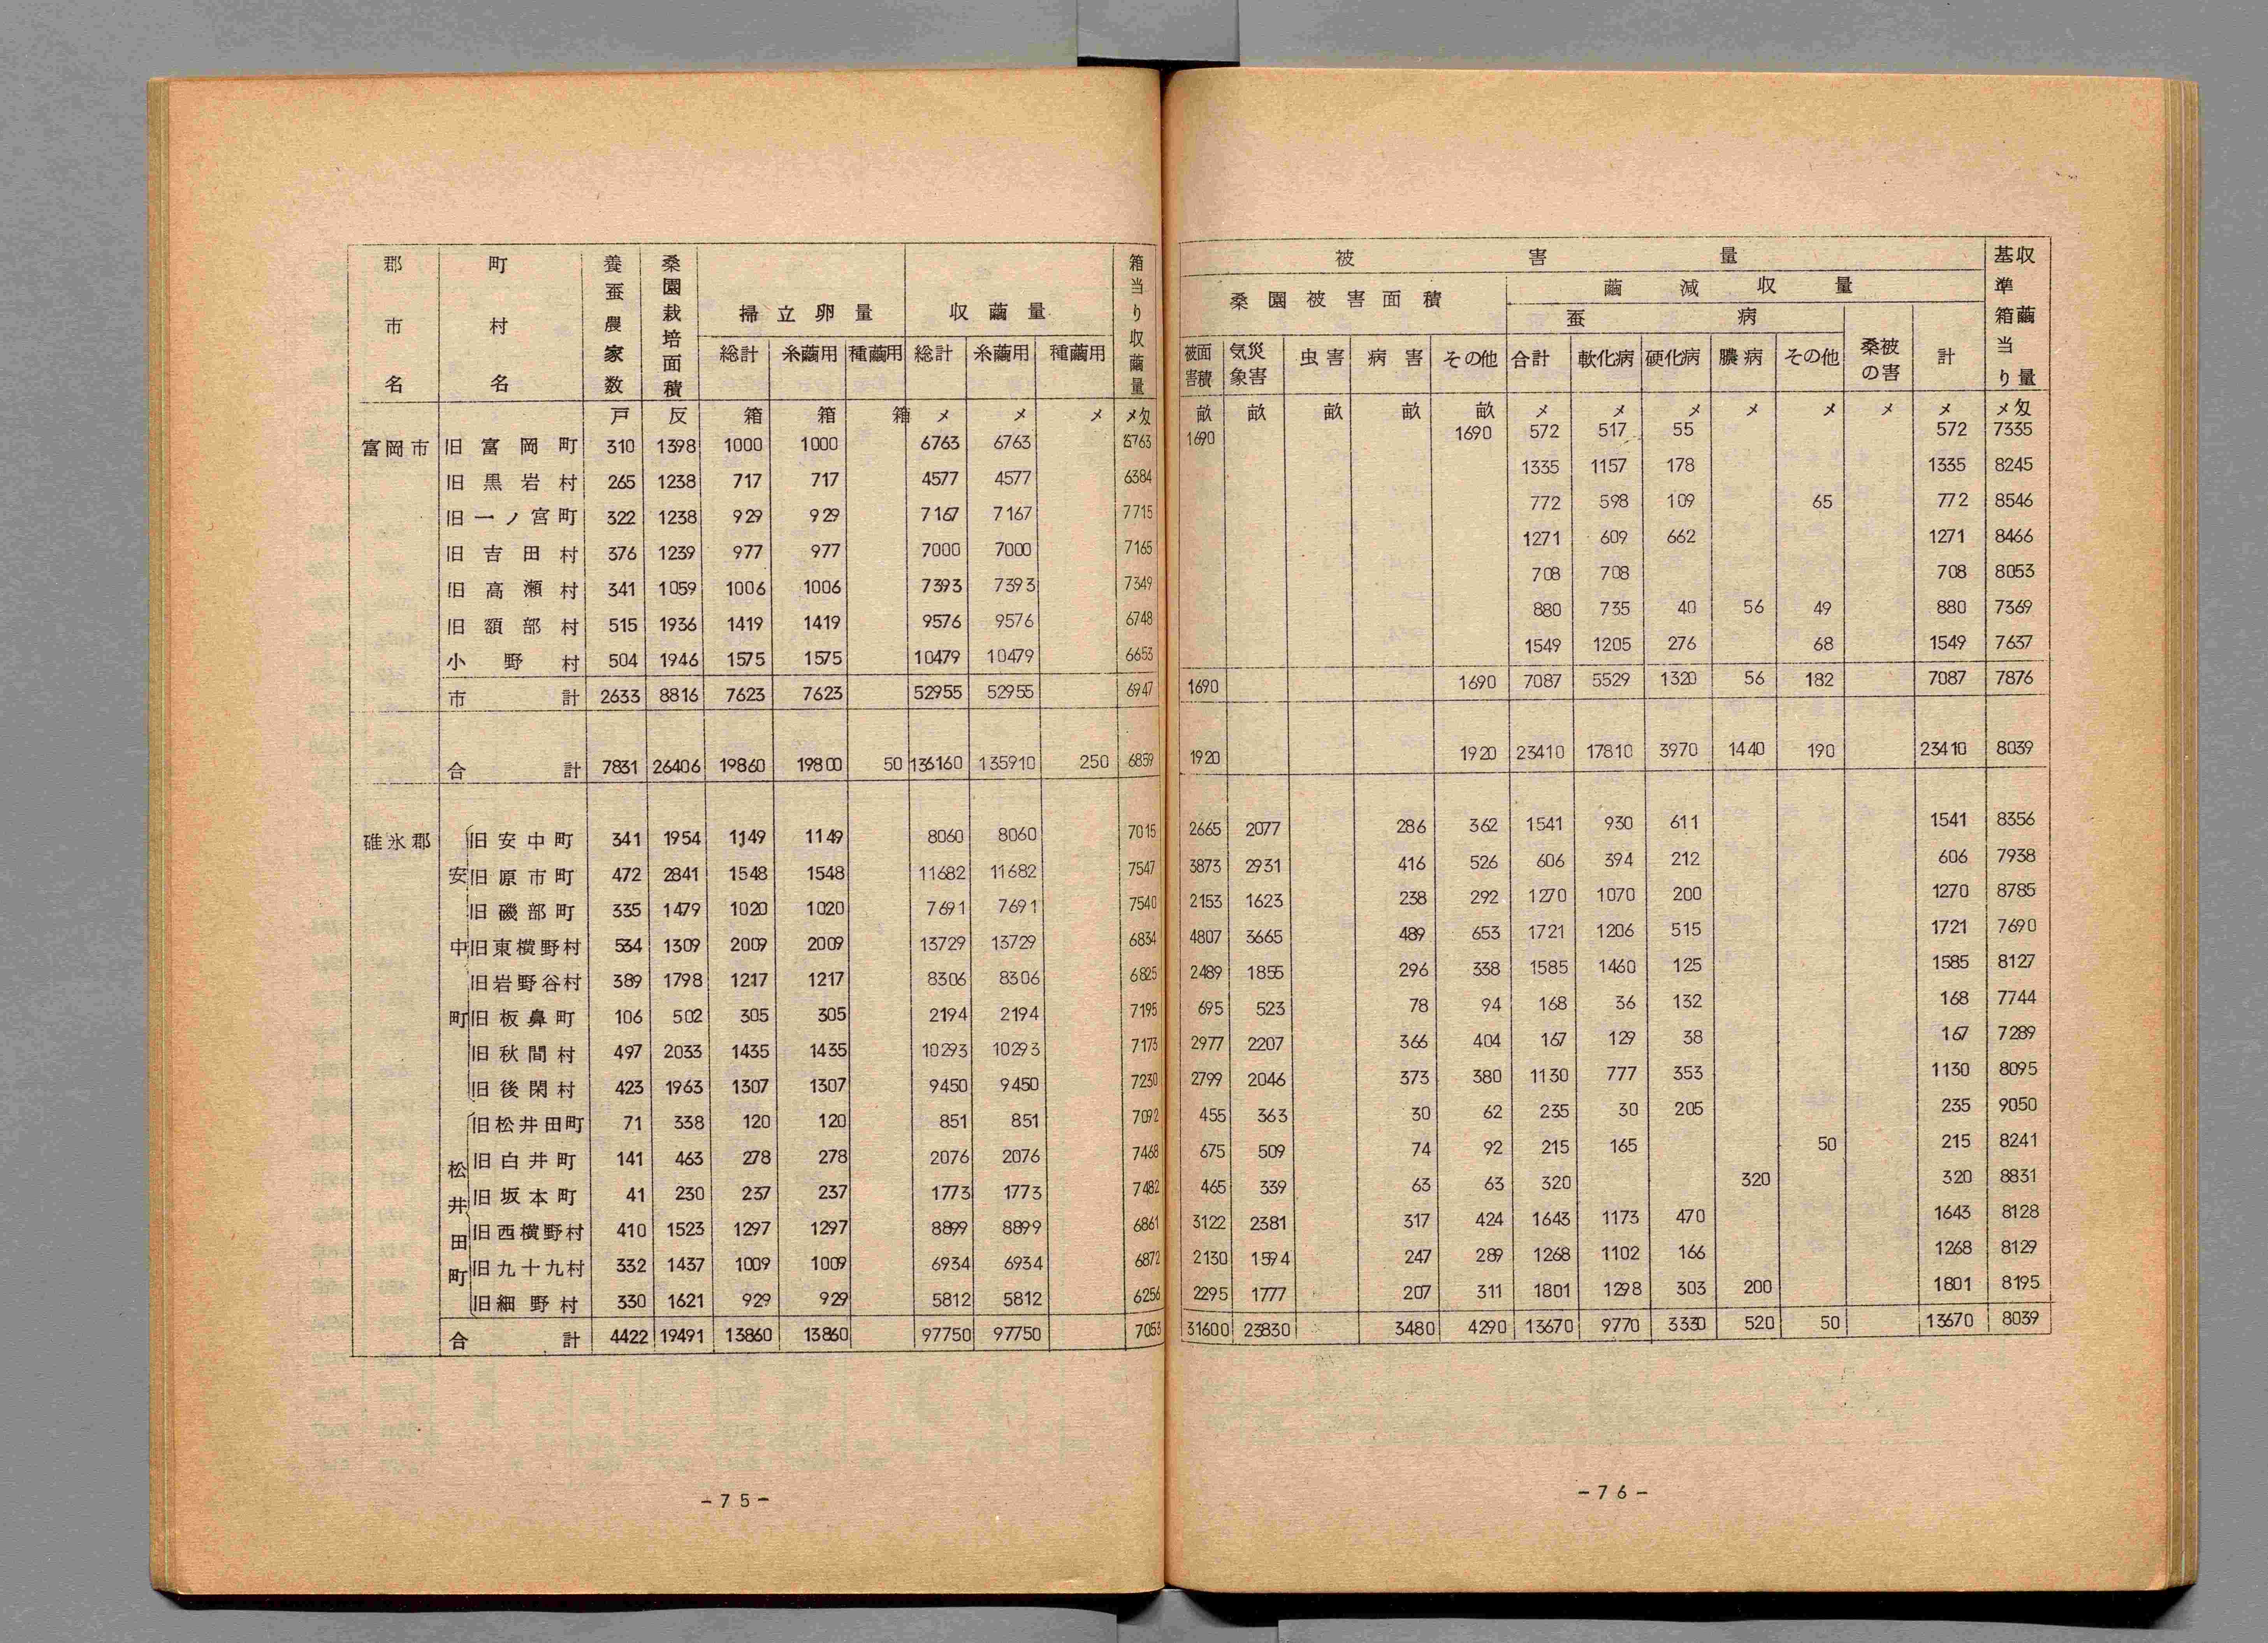 郡市名 町村名 養蚕農家数 桑園栽培面積 掃立卵量 収繭量 箱当り収繭量
総計 糸繭用 種繭用 総計 糸繭用 種繭用
戸 反 箱 箱 箱 メ メ メ メ匁
富岡市 旧富岡町 310 1398 1000 1000 6763 6763 6763
旧黒岩村 265 1238 717 717 4577 4577 6384
旧一ノ宮町 322 1238 929 929 7167 7167 7715
旧吉田村 376 1239 977 977 7000 7000 7165
旧高瀬村 341 1059 1006 1006 7393 7393 7349
旧額部村 515 1936 1419 1419 9576 9576 6748
小野村 504 1946 1575 1575 10479 10479 6653
市計 2633 8816 7623 7623 52955 52955 6947
合計 7831 26406 19860 19800 50 136160 135910 250 6859
碓氷郡 安中町 旧安中町 341 1954 1149 1149 8060 8060 7015
旧原市町 472 2841 1548 1548 11682 11682 7547
旧磯部町 335 1479 1020 1020 7691 7691 7540
旧東横野村 534 1309 2009 2009 13729 13729 6834
旧岩野谷村 389 1798 1217 1217 8306 8306 6825
旧板鼻町 106 502 305 305 2194 2194 7195
旧秋間村 497 2033 1435 1435 10293 10293 7173
旧後閑村 423 1963 1307 1307 9450 9450 7230
松井田町 旧松井田町 71 338 120 120 851 851 7092
旧白井町 141 463 278 278 2076 2076 7468
旧坂本町 41 230 237 237 1773 1773 7482
旧西横野村 410 1523 1297 1297 8899 8899 6861
旧九十九村 332 1437 1009 1009 6934 6934 6872
旧細野村 330 1621 929 929 5812 5812 6256
合計 4422 19491 13860 13860 97750 97750 7053
-75-
被害量 基準箱当り収繭量
桑園被害面積 繭減収量
蚕病 桑の被害 計
被害面積 気象災害 虫害 病害 その他 合計 軟化病 硬化病 膿病 その他
畝 畝 畝 畝 畝 メ メ メ メ メ メ メ メ匁
1690 1690 572 517 55 572 7335
1335 1157 178 1335 8245
772 598 109 65 772 8546
1271 609 662 1271 8466
708 708 708 8053
880 735 40 56 49 880 7369
1549 1205 276 68 1549 7637
1690 1690 7087 5529 1320 56 182 7087 7876
1920 1920 23410 17810 3970 1440 190 23410 8039
2665 2077 286 362 1541 930 611 1541 8356
3873 2931 416 526 606 394 212 606 7938
2153 1623 238 292 1270 1070 200 1270 8785
4807 3665 489 653 1721 1206 515 1721 7690
2489 1855 296 338 1585 1460 125 1585 8127
695 523 78 94 168 36 132 168 7744
2977 2207 366 404 167 129 38 167 7289
2799 2046 373 380 1130 777 353 1130 8095
455 363 30 62 235 30 205 235 9050
675 509 74 92 215 165 50 215 8241
465 339 63 63 320 320 320 8831
3122 2381 317 424 1643 1173 470 1643 8128
2130 1594 247 289 1268 1102 166 1268 8129
2295 1777 207 311 1801 1298 303 200 1801 8195
31600 23830 3480 4290 13670 9770 3330 520 50 13670 8039
-76-